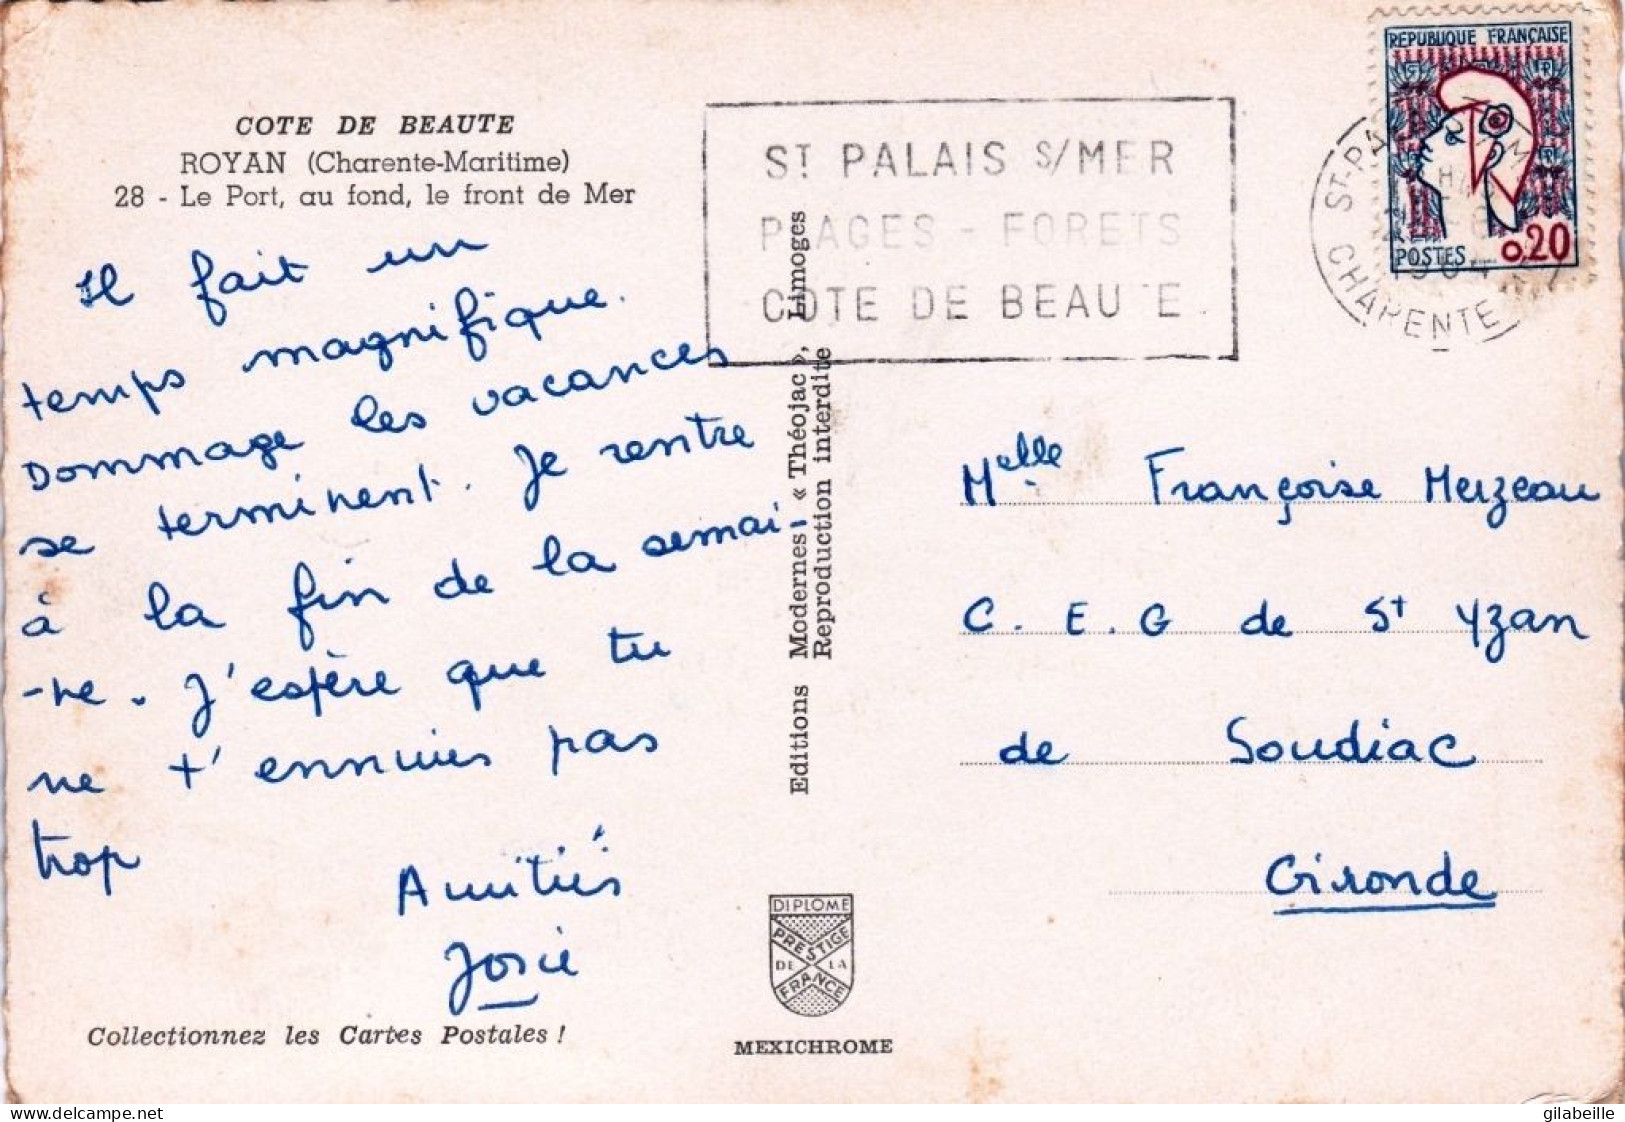 COTE DE BEAUTE
ROYAN (Charente-Maritime)
28 - Le Port, au fond, le front de Mer
Il fait un
temps magnifique.
Dommage les vacances
se terminent. Je rentre
à la fin de la semai-
-ne. J'espère que tu
ne t'ennuies pas
trop
Amitiés
Josie
Collectionnez les Cartes Postales !
Editions Modernes « Théojac », Limoges
Reproduction interdite
DIPLOME
PRESTIGE
DE LA
FRANCE
MEXICHROME
ST PALAIS S/MER
PLAGES - FORETS
COTE DE BEAUTE
REPUBLIQUE FRANÇAISE
POSTES 0,20
CHARENTE
Melle Françoise Merzeau
C.E.G de St Yzan
de Soudiac
Gironde
gilabeille